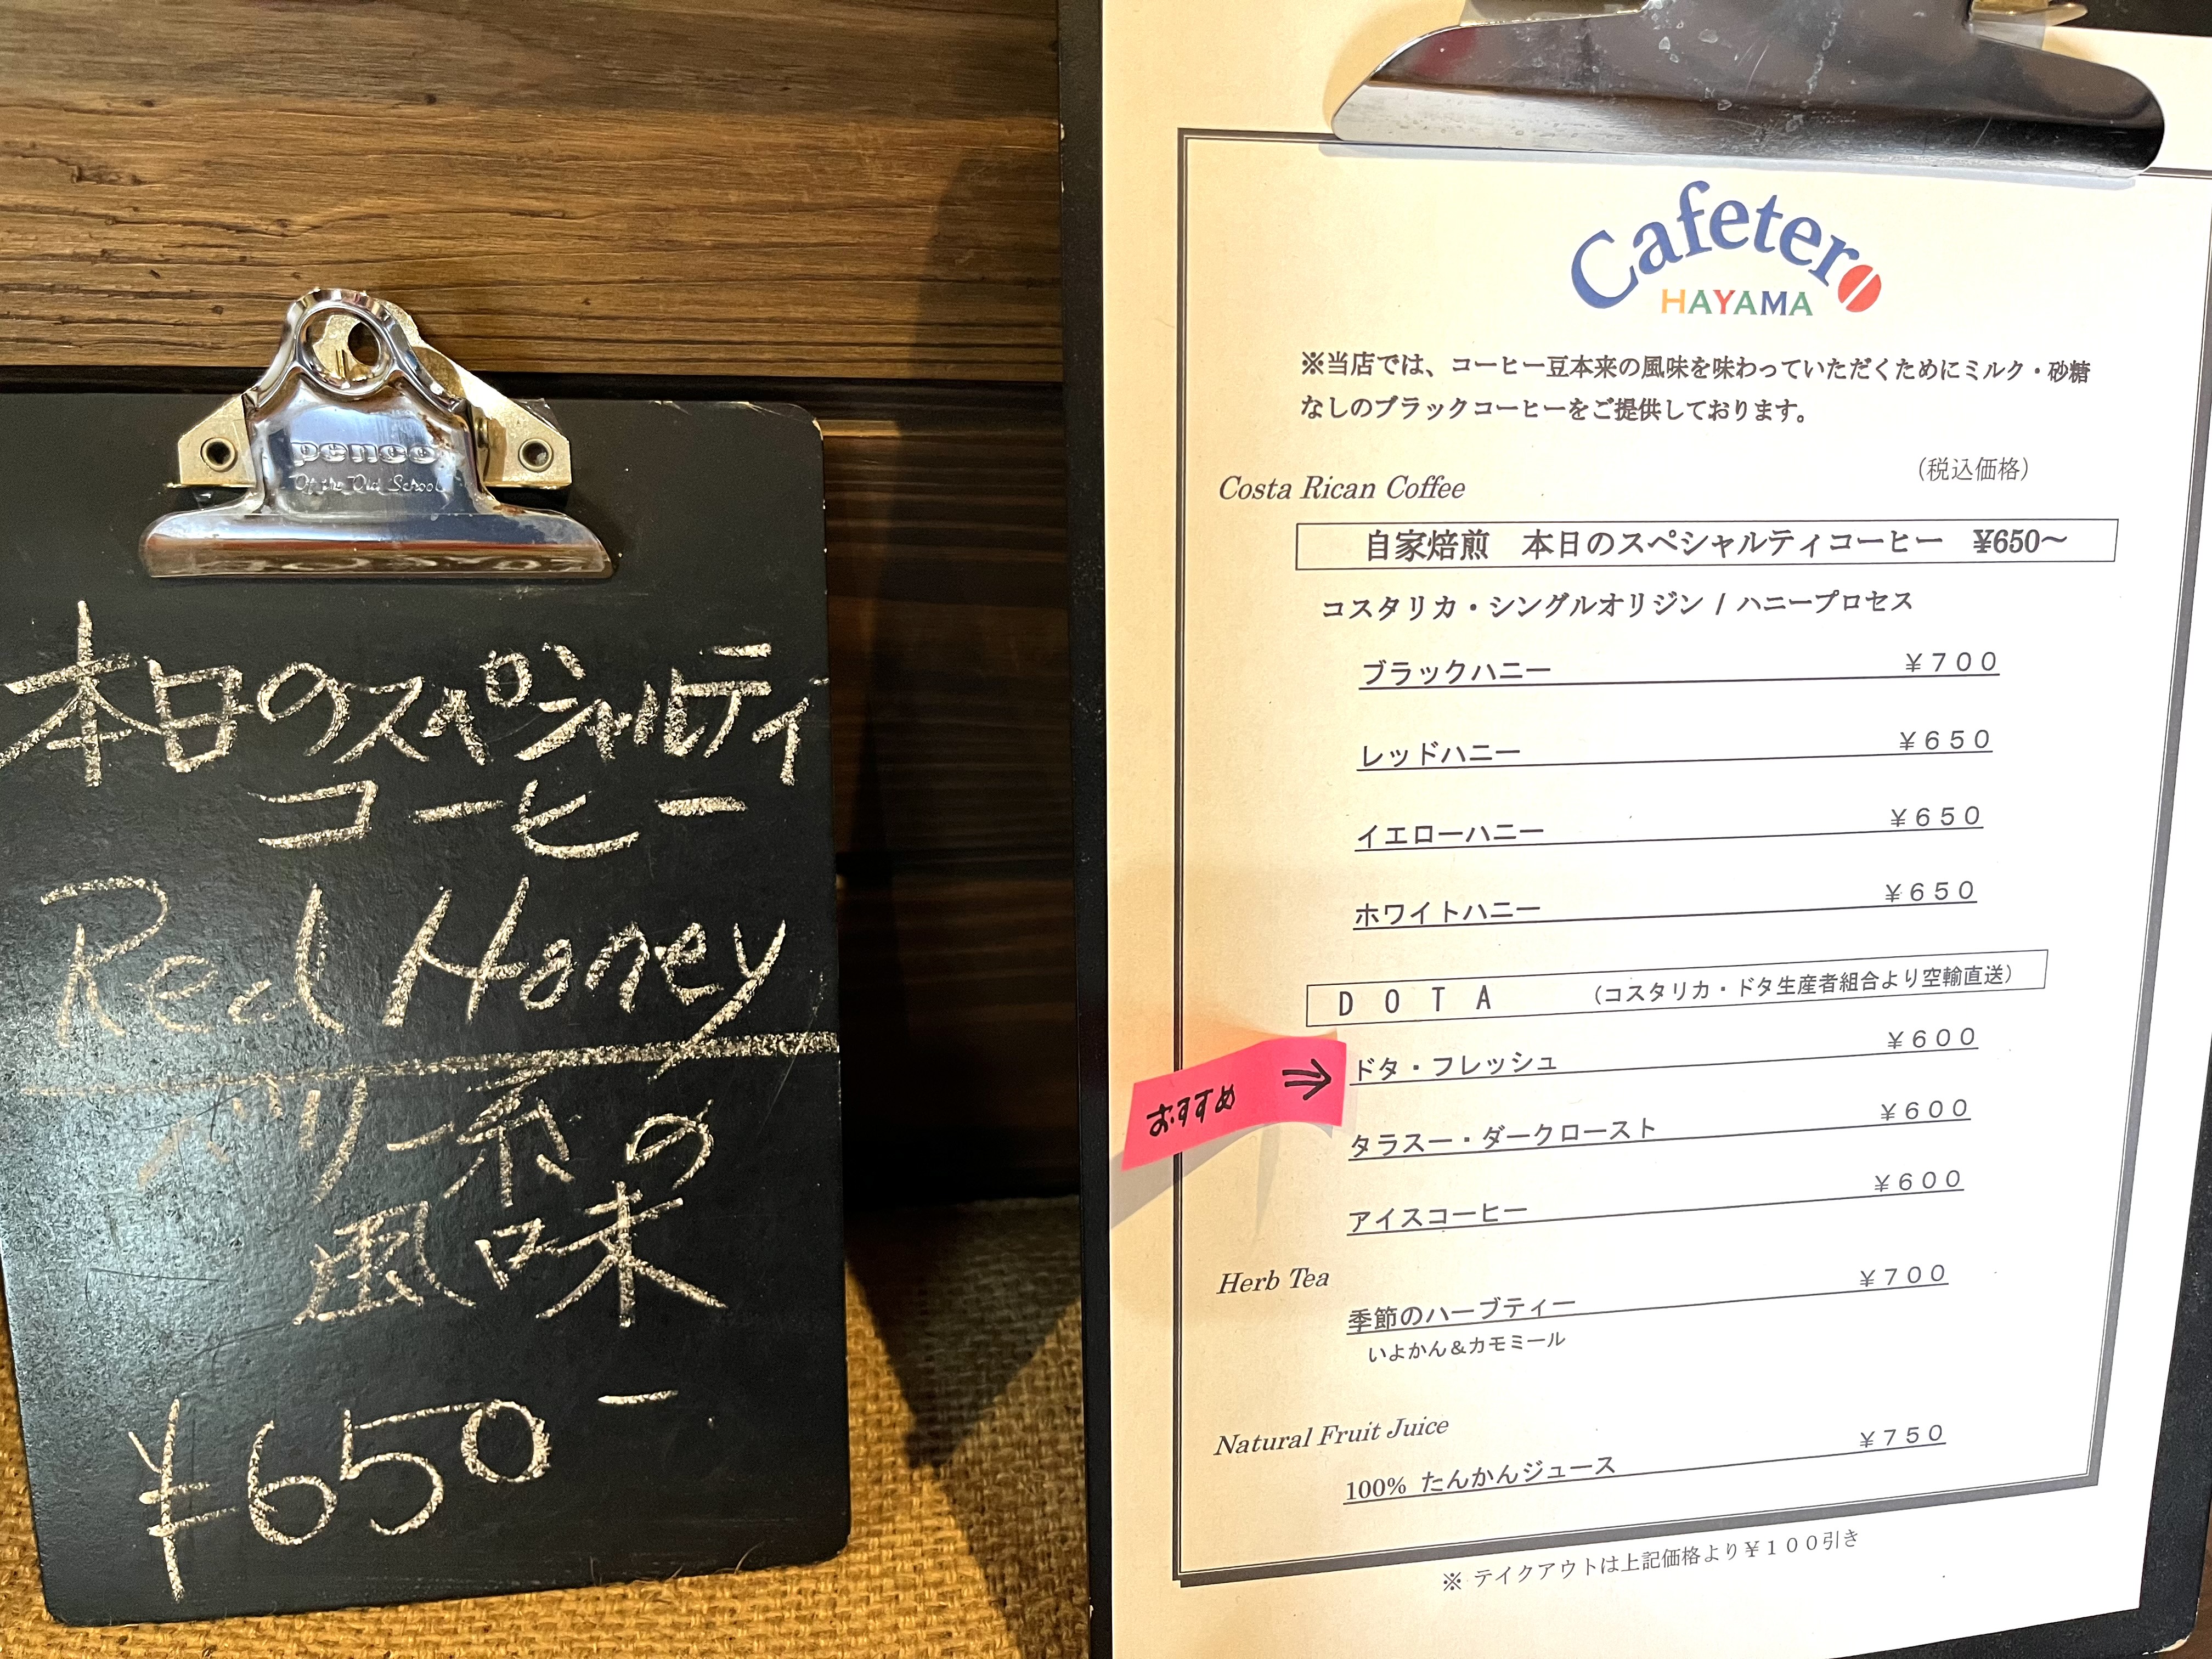 penco
Of the Old School
本日のスペシャルティ
コーヒー
Red Honey
ベリー系の
風味
¥650-
Cafetero
HAYAMA
※当店では、コーヒー豆本来の風味を味わっていただくためにミルク・砂糖
なしのブラックコーヒーをご提供しております。
（税込価格）
Costa Rican Coffee
自家焙煎　本日のスペシャルティコーヒー　¥650～
コスタリカ・シングルオリジン / ハニープロセス
ブラックハニー ￥７００
レッドハニー ￥６５０
イエローハニー ￥６５０
ホワイトハニー ￥６５０
ＤＯＴＡ （コスタリカ・ドタ生産者組合より空輸直送）
おすすめ ⇒ ドタ・フレッシュ ￥６００
タラスー・ダークロースト ￥６００
アイスコーヒー ￥６００
Herb Tea
季節のハーブティー ￥７００
いよかん＆カモミール
Natural Fruit Juice
100% たんかんジュース ￥７５０
※ テイクアウトは上記価格より￥１００引き